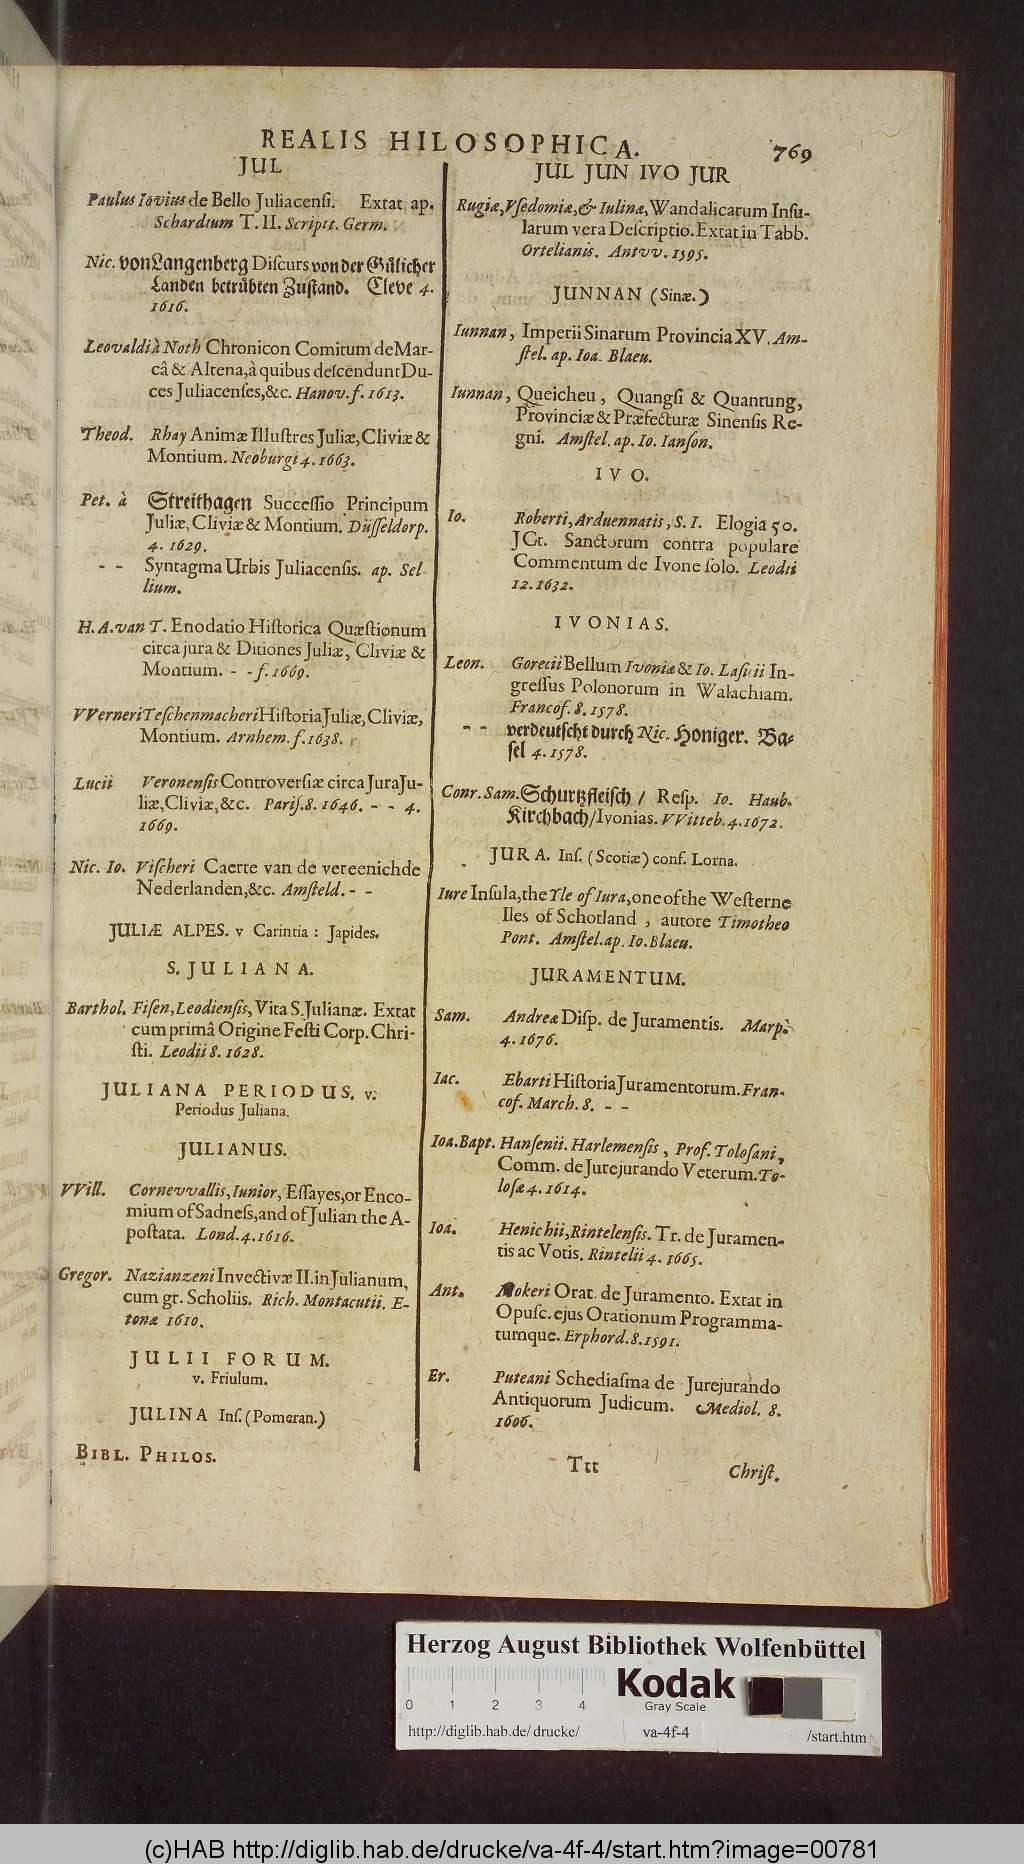 REALIS HILOSOPHICA.
769
JUL
Paulus Iovius de Bello Juliacensi. Extat ap.
Schardium T. II. Scriptt. Germ.
Nic. von Langenberg Discurs von der Gülicher
Landen betrübten Zustand. Cleve 4.
1616.
Leovaldi à Noth Chronicon Comitum de Mar-
câ & Altena, à quibus descendunt Du-
ces Juliacenses, &c. Hanov. f. 1613.
Theod. Rhay Animæ Illustres Juliæ, Cliviæ &
Montium. Neoburgi 4. 1663.
Pet. à Streithagen Successio Principum
Juliæ, Cliviæ & Montium. Düsseldorp.
4. 1629.
- - Syntagma Urbis Juliacensis. ap. Sel-
lium.
H. A. van T. Enodatio Historica Quæstionum
circa jura & Ditiones Juliæ, Cliviæ &
Montium. - - f. 1669.
VVerneri Teschenmacheri Historia Juliæ, Cliviæ,
Montium. Arnhem. f. 1638.
Lucii Veronensis Controversiæ circa Jura Ju-
liæ, Cliviæ, &c. Paris. 8. 1646. - - 4.
1669.
Nic. Io. Vischeri Caerte van de vereenichde
Nederlanden, &c. Amsteld. - -
JULIÆ ALPES. v Carintia: Japides.
S. JULIANA.
Barthol. Fisen, Leodiensis, Vita S. Julianæ. Extat
cum primâ Origine Festi Corp. Chri-
sti. Leodii 8. 1628.
JULIANA PERIODUS. v.
Periodus Juliana.
JULIANUS.
VVill. Cornevvallis, Iunior, Essayes, or Enco-
mium of Sadness, and of Julian the A-
postata. Lond. 4. 1616.
Gregor. Nazianzeni Invectivæ II. in Julianum,
cum gr. Scholiis. Rich. Montacutii. E-
tonæ 1610.
JULII FORUM.
v. Friulum.
JULINA Ins. (Pomeran.)
BIBL. PHILOS.
JUL JUN IVO JUR
Rugiæ, Vsedomiæ, & Iulinæ, Wandalicarum Insu-
larum vera Descriptio. Extat in Tabb.
Ortelianis. Antvv. 1595.
JUNNAN (Sinæ.)
Iunnan, Imperii Sinarum Provincia XV. Am-
stel. ap. Ioa. Blaeu.
Iunnan, Queicheu, Quangsi & Quantung,
Provinciæ & Præfecturæ Sinensis Re-
gni. Amstel. ap. Io. Ianson.
IVO.
Io. Roberti, Arduennatis, S. I. Elogia 50.
JCt. Sanctorum contra populare
Commentum de Ivone solo. Leodii
12. 1632.
IVONIAS.
Leon. Gorecii Bellum Ivoniæ & Io. Lasicii In-
gressus Polonorum in Walachiam.
Francof. 8. 1578.
- - verdeutscht durch Nic. Honiger. Ba-
sel 4. 1578.
Conr. Sam. Schurtzfleisch / Resp. Io. Haub.
Kirchbach / Ivonias. VVitteb. 4. 1672.
JURA. Ins. (Scotiæ) conf. Lorna.
Iuræ Insula, the Yle of Iura, one of the Westerne
Iles of Schotland, autore Timotheo
Pont. Amstel. ap. Io. Blaeu.
JURAMENTUM.
Sam. Andreæ Disp. de Juramentis. Marp.
4. 1676.
Iac. Ebarti Historia Juramentorum. Fran-
cof. March. 8. - -
Ioa. Bapt. Hansenii. Harlemensis, Prof. Tolosani,
Comm. de Jurejurando Veterum. To-
losæ 4. 1614.
Ioa. Henichii, Rintelensis. Tr. de Juramen-
tis ac Votis. Rintelii 4. 1665.
Ant. Mokeri Orat. de Juramento. Extat in
Opusc. ejus Orationum Programma-
tumque. Erphord. 8. 1591.
Er. Puteani Schediasma de Jurejurando
Antiquorum Judicum. Mediol. 8.
1606.
Ttt
Christ.
Herzog August Bibliothek Wolfenbüttel
Kodak
Gray Scale
0 1 2 3 4
http://diglib.hab.de/drucke/ va-4f-4 /start.htm
(c)HAB http://diglib.hab.de/drucke/va-4f-4/start.htm?image=00781